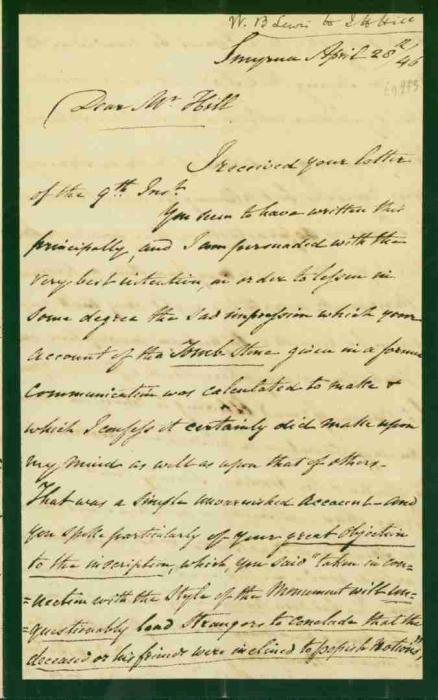 W. B Lewis to J H Hill
Smyrna April 28th/46
Dear Mr Hill
I received your letter
of the 9th Inst.
You seem to have written this
principally, and I am persuaded with the
very best intention, in order to lessen in
some degree the sad impression which your
account of the Tomb Stone given in a former
communication was calculated to make &
which I confess it certainly did make upon
my mind as well as upon that of others.
That was a simple unvarnished account – and
you spoke particularly of your great objection
to the inscription, which, you said "taken in con=
=nection with the Style of the Monument will un=
=questionably lead strangers to conclude that the
deceased or his friends were inclined to popish notions",